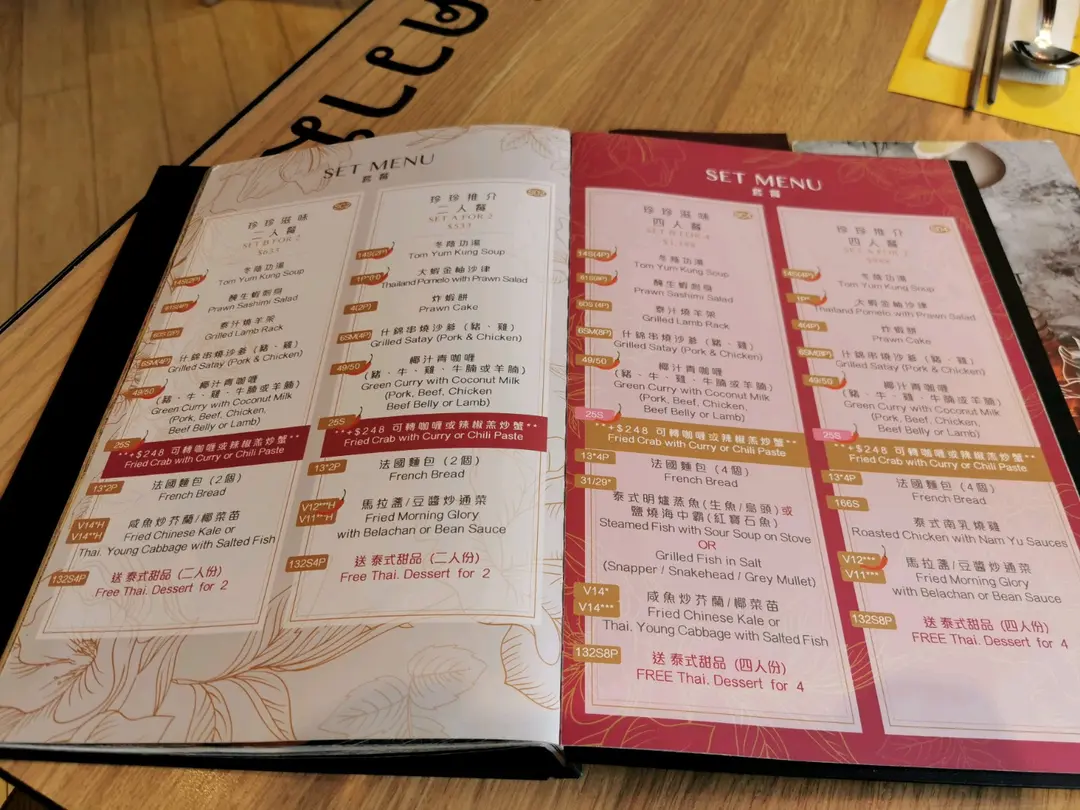 SET MENU
套餐
珍珍滋味
二人餐
SET B FOR 2
14S(2P)
冬陰功湯
Tom Yum Kung Soup
醃生蝦刺身
Prawn Sashimi Salad
泰汁燒羊架
Grilled Lamb Rack
6SM(8P)
什錦串燒沙爹（豬、雞）
Grilled Satay (Pork & Chicken)
49/50
椰汁青咖喱
（豬、牛、雞、牛腩或羊腩）
Green Curry with Coconut Milk
(Pork, Beef, Chicken,
Beef Belly or Lamb)
25S
**+$248 可轉咖喱或辣椒羔炒蟹**
Fried Crab with Curry or Chili Paste
13*2P
法國麵包（2個）
French Bread
V14*H
V14**H
咸魚炒芥蘭/椰菜苗
Fried Chinese Kale or
Thai. Young Cabbage with Salted Fish
132S4P
送 泰式甜品（二人份）
Free Thai. Dessert for 2
珍珍推介
二人餐
SET A FOR 2
$533
14S(2P)
冬陰功湯
Tom Yum Kung Soup
大蝦金柚沙律
Thailand Pomelo with Prawn Salad
4(2P)
炸蝦餅
Prawn Cake
6SM(4P)
什錦串燒沙爹（豬、雞）
Grilled Satay (Pork & Chicken)
49/50
椰汁青咖喱
（豬、牛、雞、牛腩或羊腩）
Green Curry with Coconut Milk
(Pork, Beef, Chicken,
Beef Belly or Lamb)
25S
**+$248 可轉咖喱或辣椒羔炒蟹**
Fried Crab with Curry or Chili Paste
13*2P
法國麵包（2個）
French Bread
V12***H
V11***H
馬拉盞/豆醬炒通菜
Fried Morning Glory
with Belachan or Bean Sauce
132S4P
送 泰式甜品（二人份）
Free Thai. Dessert for 2
SET MENU
套餐
珍珍滋味
四人餐
SET B FOR 4
14S(4P)
冬陰功湯
Tom Yum Kung Soup
醃生蝦刺身
Prawn Sashimi Salad
泰汁燒羊架
Grilled Lamb Rack
6SM(8P)
什錦串燒沙爹（豬、雞）
Grilled Satay (Pork & Chicken)
49/50
椰汁青咖喱
（豬、牛、雞、牛腩或羊腩）
Green Curry with Coconut Milk
(Pork, Beef, Chicken,
Beef Belly or Lamb)
25S
**+$248 可轉咖喱或辣椒羔炒蟹**
Fried Crab with Curry or Chili Paste
13*4P
法國麵包（4個）
French Bread
31/29*
泰式明爐蒸魚（生魚/烏頭）或
鹽燒海中霸（紅寶石魚）
Steamed Fish with Sour Soup on Stove
OR
Grilled Fish in Salt
(Snapper / Snakehead / Grey Mullet)
V14*
V14***
咸魚炒芥蘭/椰菜苗
Fried Chinese Kale or
Thai. Young Cabbage with Salted Fish
132S8P
送 泰式甜品（四人份）
FREE Thai. Dessert for 4
珍珍推介
四人餐
14S(4P)
冬陰功湯
Tom Yum Kung Soup
大蝦金柚沙律
Thailand Pomelo with Prawn Salad
4(4P)
炸蝦餅
Prawn Cake
6SM(8P)
什錦串燒沙爹（豬、雞）
Grilled Satay (Pork & Chicken)
49/50
椰汁青咖喱
（豬、牛、雞、牛腩或羊腩）
Green Curry with Coconut Milk
(Pork, Beef, Chicken,
Beef Belly or Lamb)
25S
**+$248 可轉咖喱或辣椒羔炒蟹**
Fried Crab with Curry or Chili Paste
13*4P
法國麵包（4個）
French Bread
166S
泰式南乳燒雞
Roasted Chicken with Nam Yu Sauces
V12***
V11***
馬拉盞/豆醬炒通菜
Fried Morning Glory
with Belachan or Bean Sauce
132S8P
送 泰式甜品（四人份）
FREE Thai. Dessert for 4